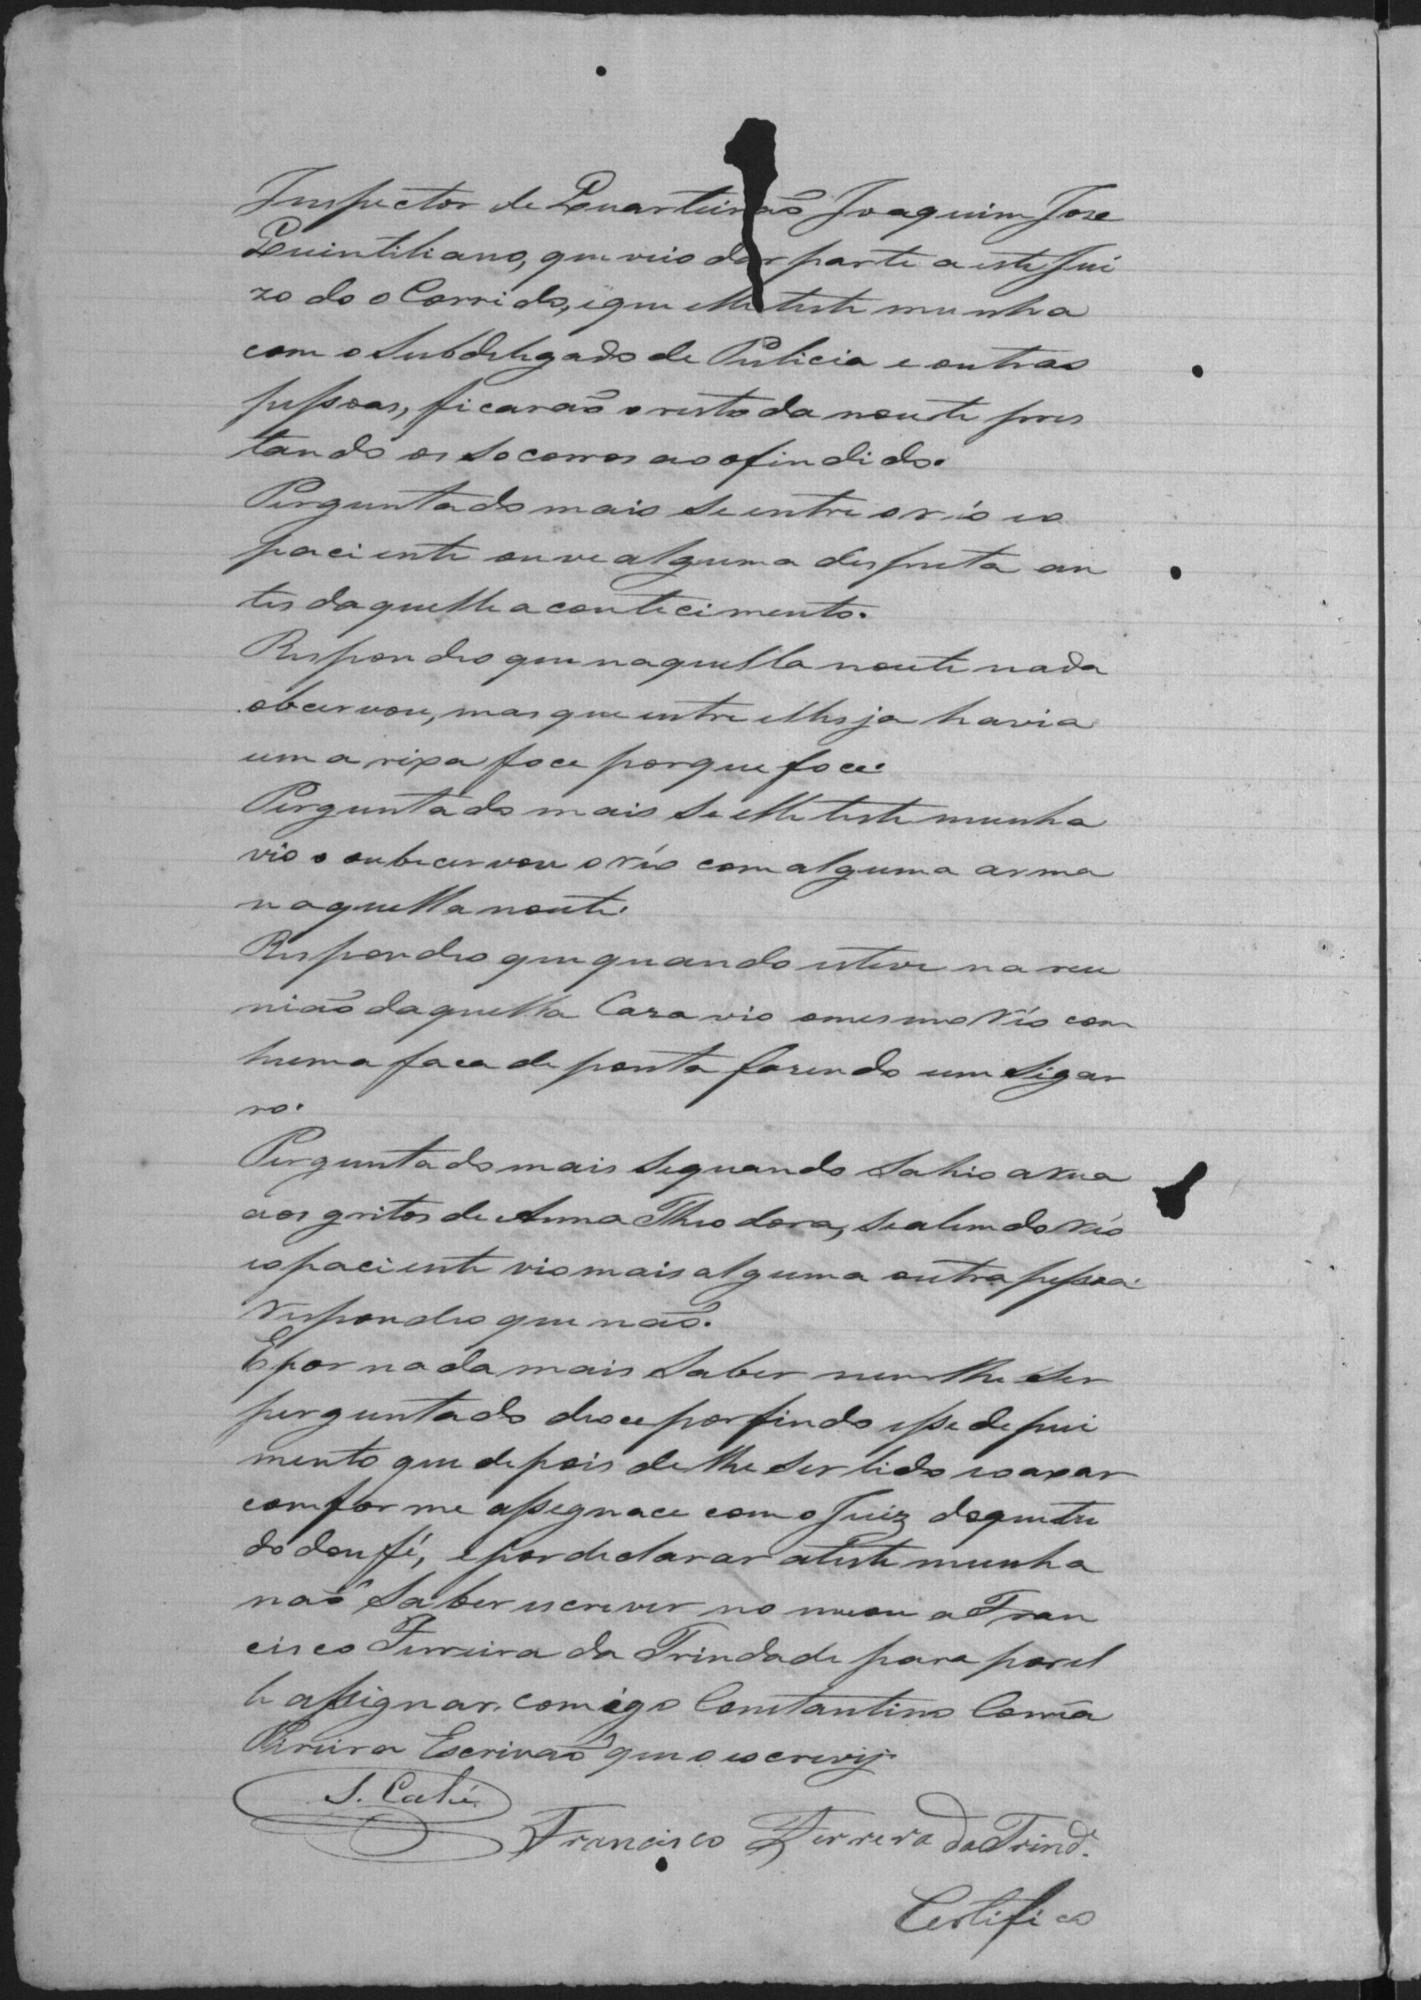 Inspector de Quarteirão Joaquim Jose
Quintiliano, que veio dar parte a este Jui
zo do o Corrido, e que elle testemunha
com o Subdelegado de Pulicia e outras
pessoas, ficarão o resto da noute pres
tando os Socorros ao ofindido.
Perguntado mais Se entre o réo e o
paciente ouve alguma desputa an
tes daquelle acontecimento.
Respondeo que naquella noute nada
obcervou, mas que entre elles ja havia
uma rixa foce porque foce.
Perguntado mais Se elle testemunha
vio o oubcervou o réo com alguma arma
naquella noute.
Respondeo que quando esteve na reu
nião daquella Caza vio o mesmo réo com
huma faca de ponta fazendo um Sigar
ro.
Perguntado mais Se quando Sahio a rua
aos gritos de Anna Theodora, se alem do réo
e o paciente vio mais alguma outra pessoa.
respondeo que não.
E por nada mais Saber nem lhe Ser
perguntado deoce por findo esse depui
mento que depois de lhe Ser lido e o axar
comforme assegnace com o Juiz do que tu
do dou fé, e por declarar a testemunha
não Saber escrever no meou a Fran
cisco Ferreira da Trindade para por el
le assignar, comigo Constantino Corrêa
Pireira Escrivão que o escrevy.
Francisco Ferrera da Trind.e
Certifico